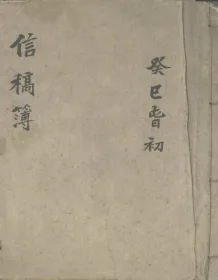 癸巳春初
信稿簿